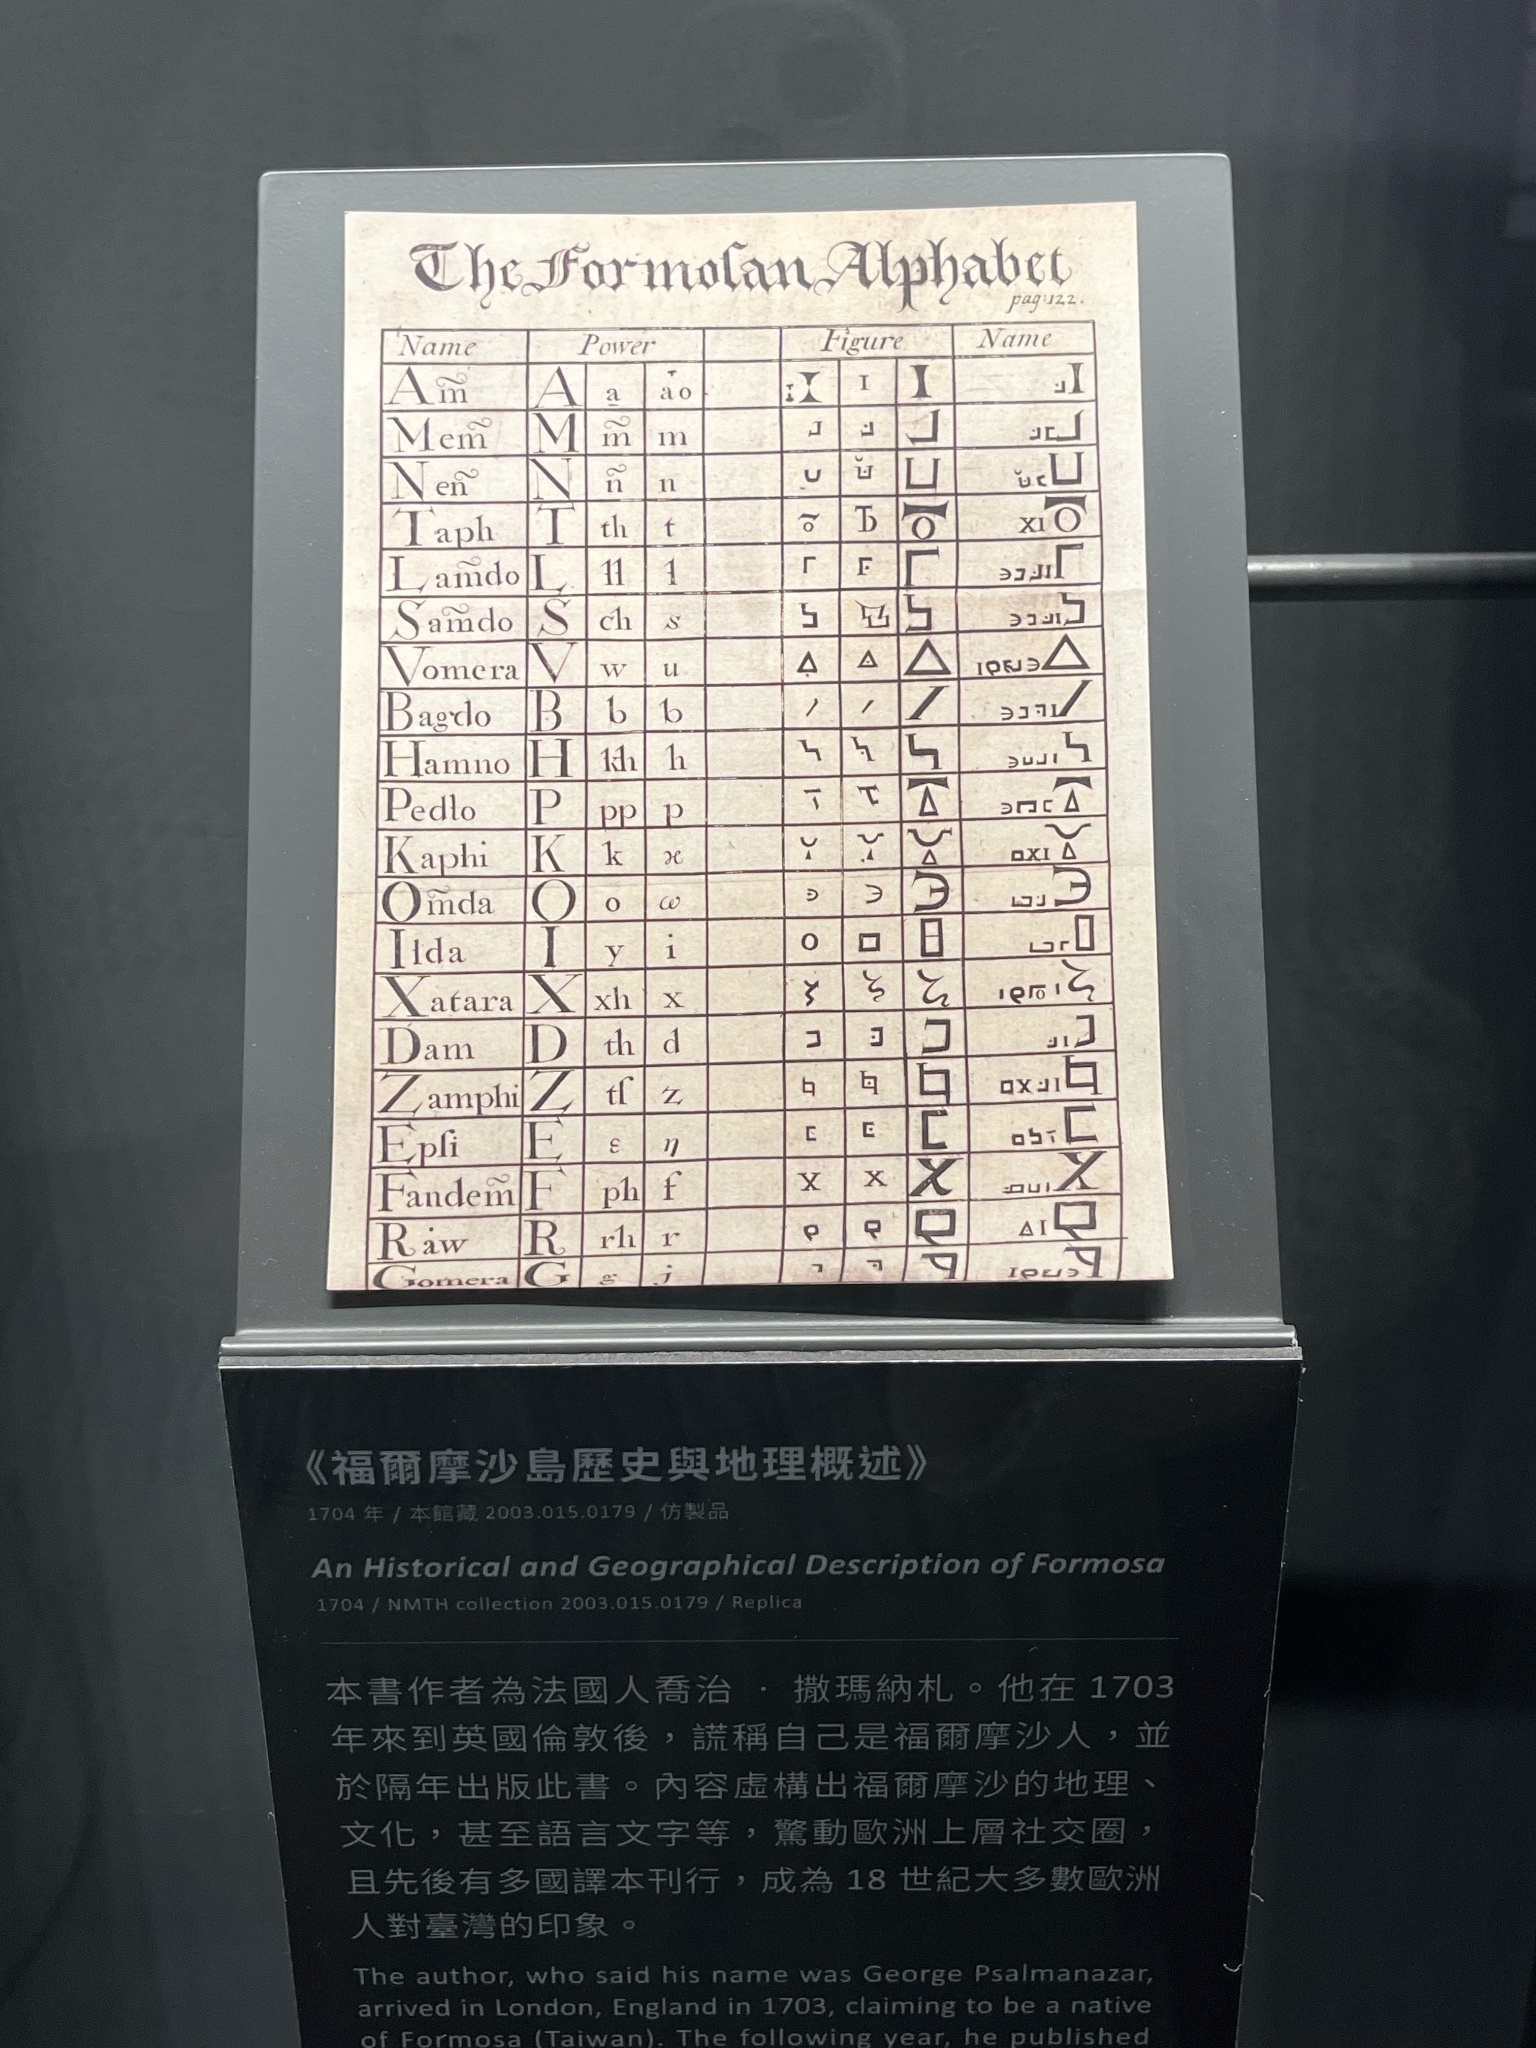 The Formoſan Alphabet
pag: 122.
Name Power Figure Name
Am̃ A a ao
Mem̃ M m̃ m
Neñ N ñ n
Taph T th t
Lam̃do L ll l
Sam̃do S ch s
Vomera V w u
Bagdo B b b
Hamno H kh h
Pedlo P pp p
Kaphi K k ϰ
Om̃da O o ω
Ilda I y i
Xatara X xh x
Dam D th d
Zamphi Z tſ z
Epſi E ε η
Fandem̃ F ph f
Raw R rh r
Gomera G g j
《福爾摩沙島歷史與地理概述》
1704 年 / 本館藏 2003.015.0179 / 仿製品
An Historical and Geographical Description of Formosa
1704 / NMTH collection 2003.015.0179 / Replica
本書作者為法國人喬治 · 撒瑪納札。他在 1703
年來到英國倫敦後，謊稱自己是福爾摩沙人，並
於隔年出版此書。內容虛構出福爾摩沙的地理、
文化，甚至語言文字等，驚動歐洲上層社交圈，
且先後有多國譯本刊行，成為 18 世紀大多數歐洲
人對臺灣的印象。
The author, who said his name was George Psalmanazar,
arrived in London, England in 1703, claiming to be a native
of Formosa (Taiwan). The following year, he published